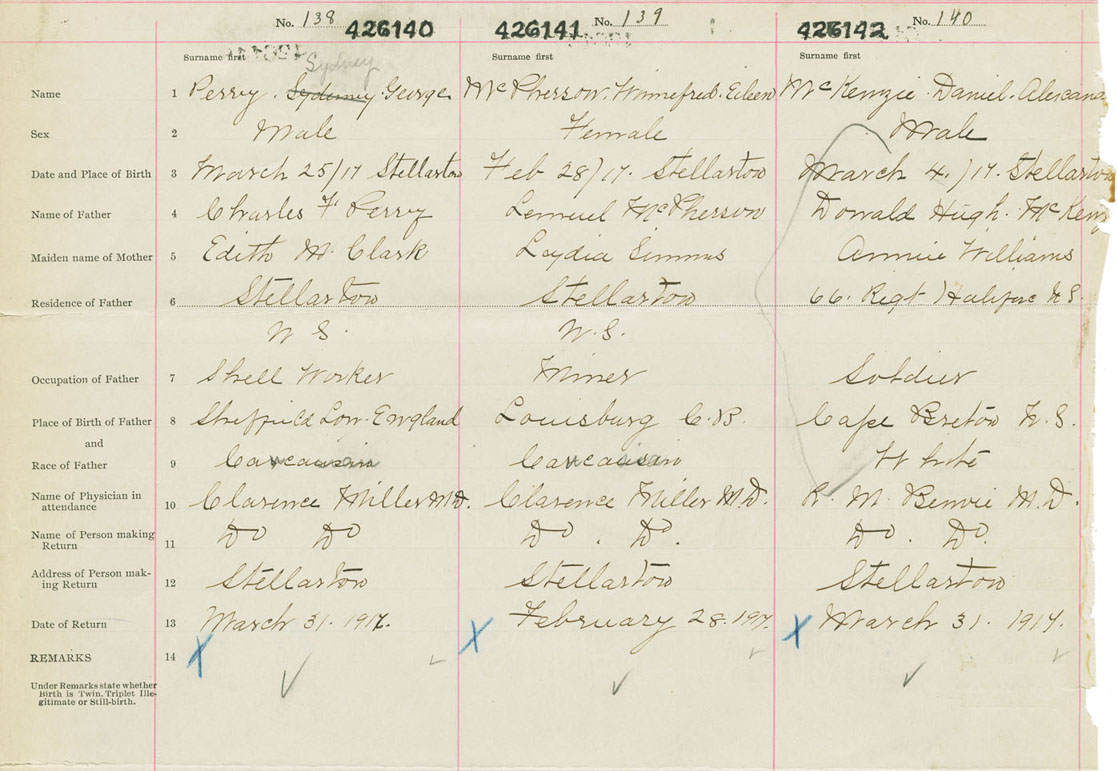 No. 138 426140 426141 No. 139 426142 No. 140
Surname first Surname first Surname first
Sydney
Name 1 Perry. Syderney George McPherson. Winnefred. Eileen McKenzie Daniel. Alexana
Sex 2 Male Female Male
Date and Place of Birth 3 March 25/17 Stellarton Feb 28/17. Stellarton March 4./17. Stellarton
Name of Father 4 Charles F Perry Lemuel McPherson Donald Hugh. McKenz
Maiden name of Mother 5 Edith M. Clark Lydia Simms Annie Williams
Residence of Father 6 Stellarton Stellarton 66. Regt Halifax N S.
N S. N.S.
Occupation of Father 7 Steel Worker Miner Soldier
Place of Birth of Father 8 Sheffield Low. England Louisburg C.B. Cape Breton N.S.
and
Race of Father 9 Carcausin Carcausin White
Name of Physician in
attendance 10 Clarence Miller M.D. Clarence Miller M.D. R. M. Benvie M.D.
Name of Person making
Return 11 Do Do Do. Do. Do. Do.
Address of Person mak-
ing Return 12 Stellarton Stellarton Stellarton
Date of Return 13 March 31. 1917. February 28. 1917. March 31. 1917.
REMARKS 14 X X X
Under Remarks state whether
Birth is Twin, Triplet Ille-
gitimate or Still-birth.